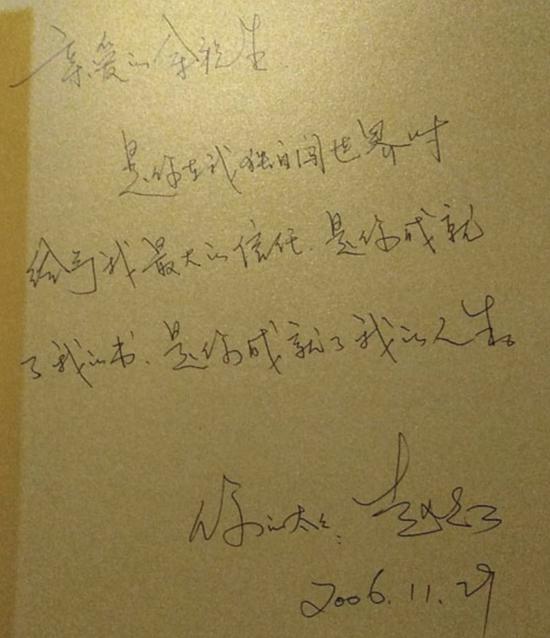 亲爱的余先生
是你在我独自闯世界时
给予我最大的信任、是你成就
了我的书、是你成就了我的人生。
你的太太:
2006.11.29